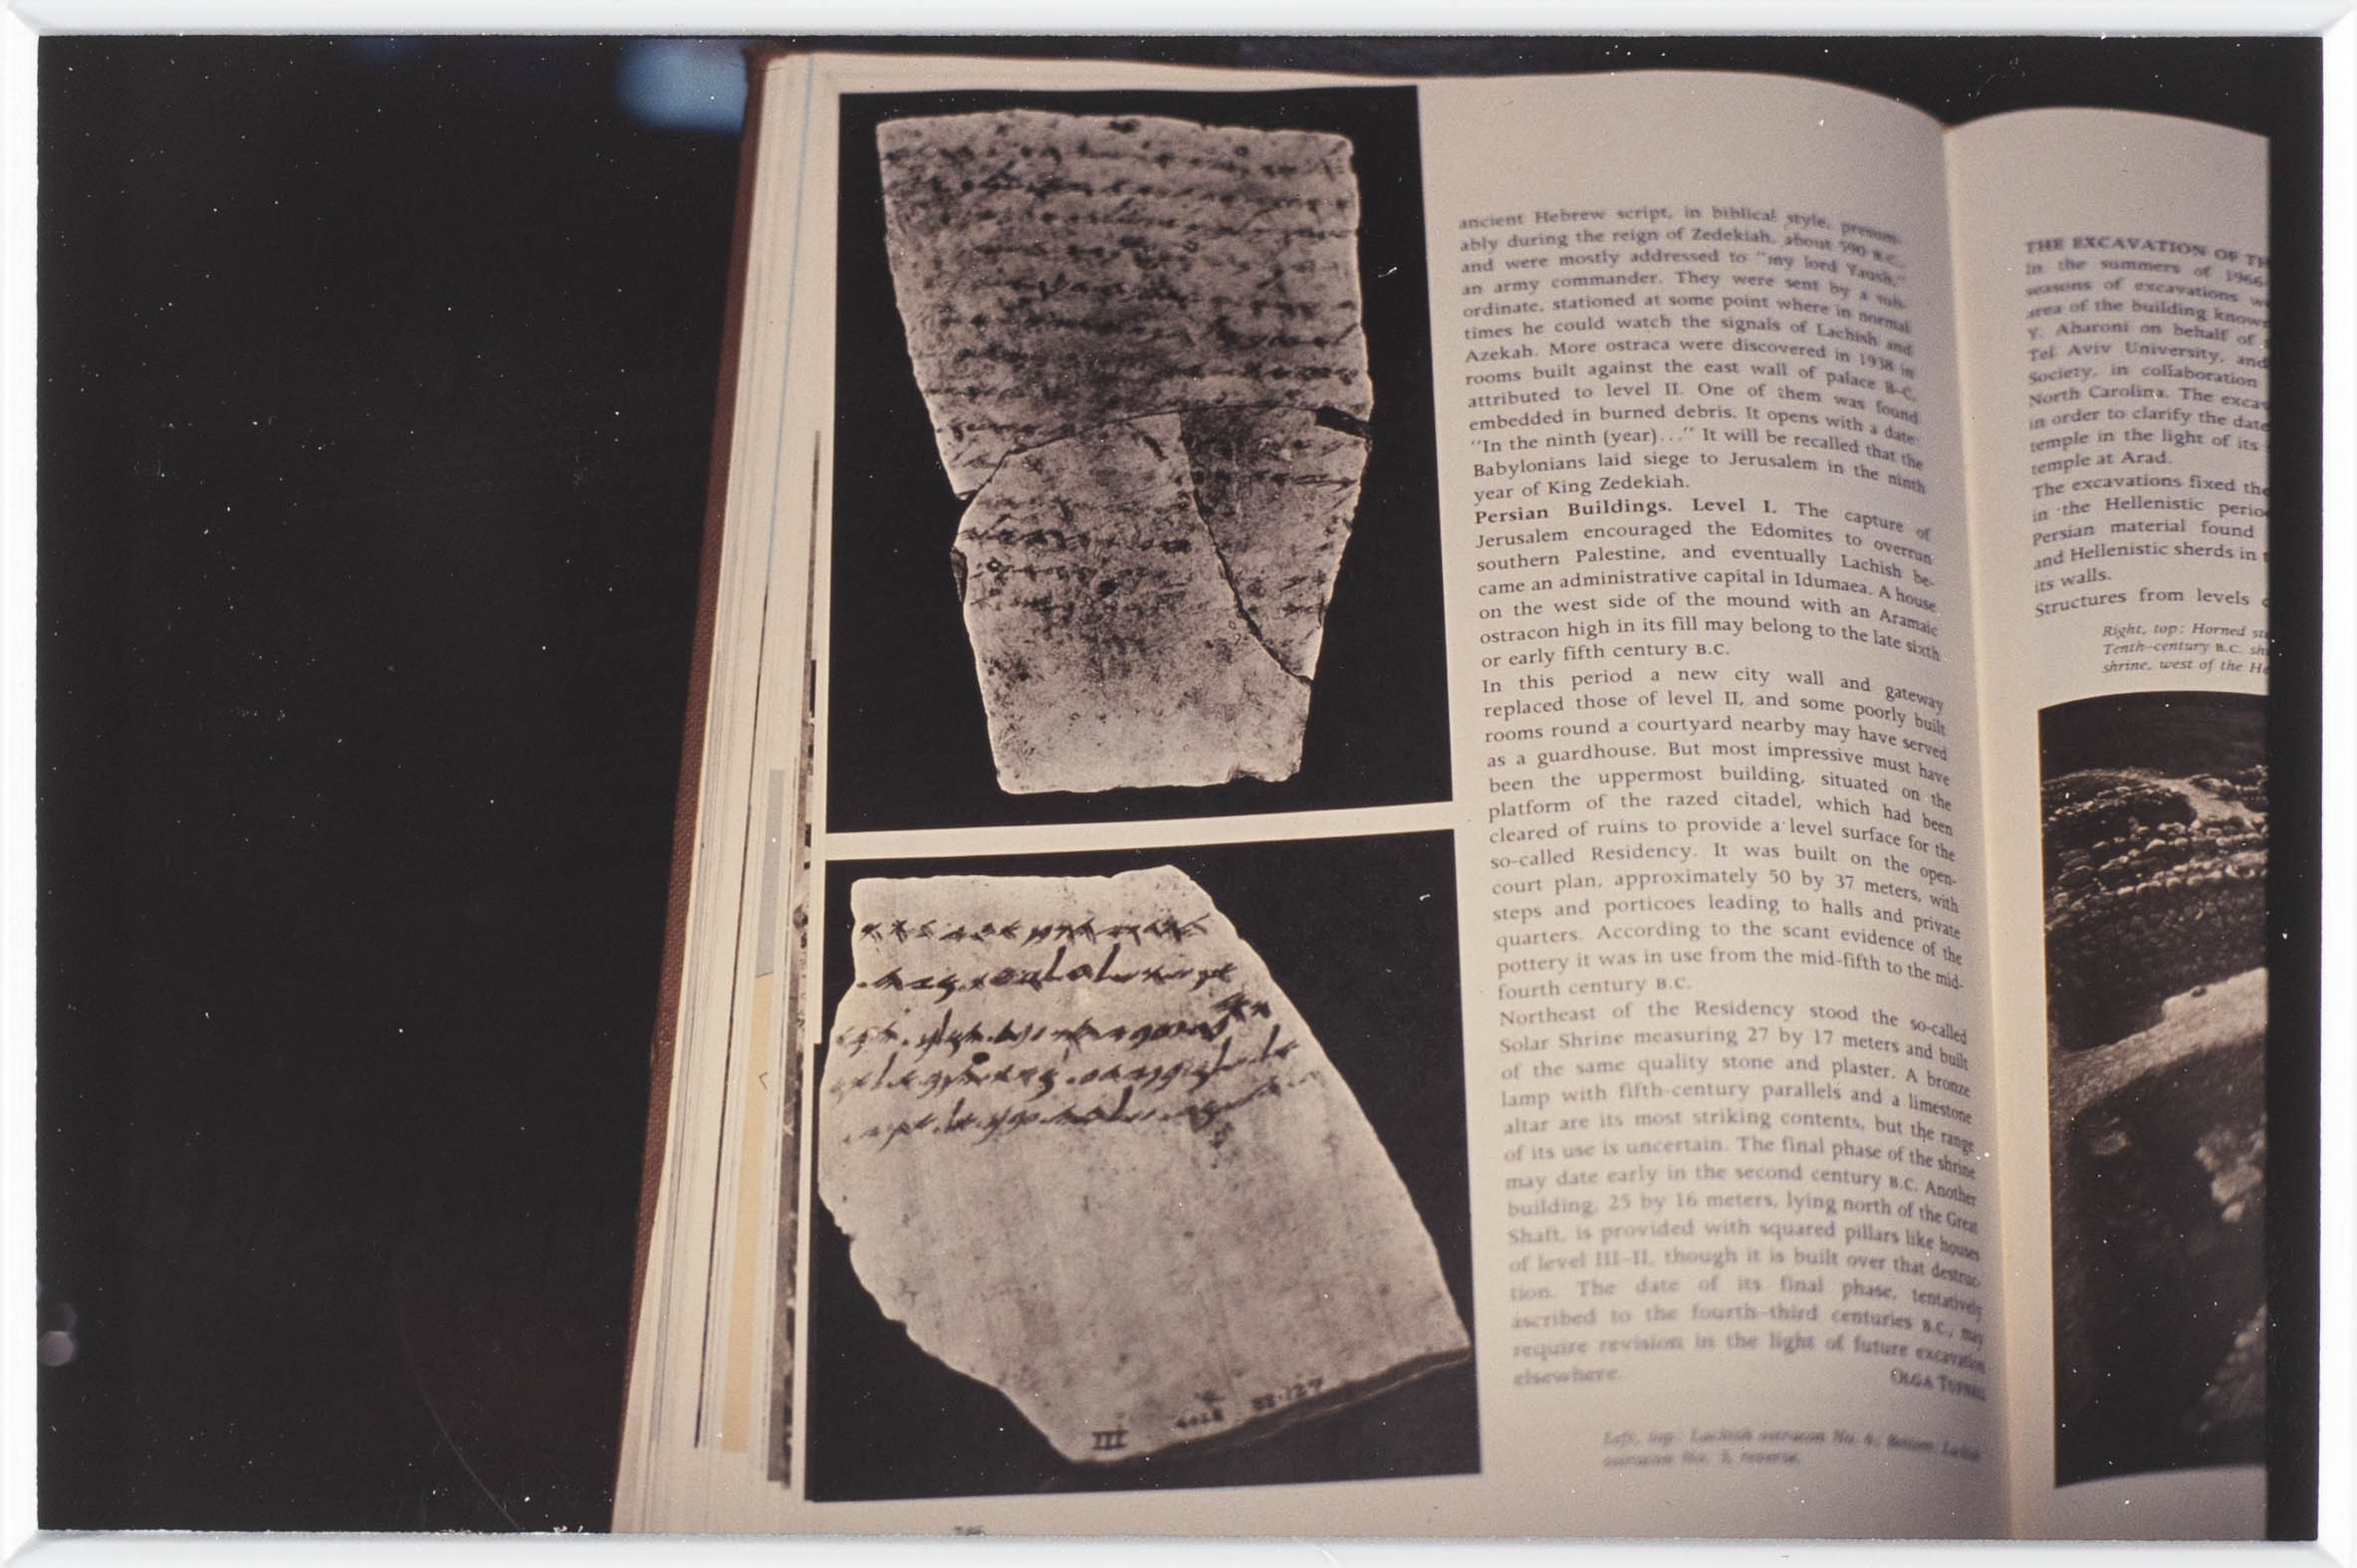 ancient Hebrew script, in biblical style, presum-
ably during the reign of Zedekiah, about 590 B.C.,
and were mostly addressed to "my lord Yaush,"
an army commander. They were sent by a sub-
ordinate, stationed at some point where in normal
times he could watch the signals of Lachish and
Azekah. More ostraca were discovered in 1938 in
rooms built against the east wall of palace B-C,
attributed to level II. One of them was found
embedded in burned debris. It opens with a date:
"In the ninth (year)..." It will be recalled that the
Babylonians laid siege to Jerusalem in the ninth
year of King Zedekiah.
Persian Buildings. Level I. The capture of
Jerusalem encouraged the Edomites to overrun
southern Palestine, and eventually Lachish be-
came an administrative capital in Idumaea. A house
on the west side of the mound with an Aramaic
ostracon high in its fill may belong to the late sixth
or early fifth century B.C.
In this period a new city wall and gateway
replaced those of level II, and some poorly built
rooms round a courtyard nearby may have served
as a guardhouse. But most impressive must have
been the uppermost building, situated on the
platform of the razed citadel, which had been
cleared of ruins to provide a level surface for the
so-called Residency. It was built on the open-
court plan, approximately 50 by 37 meters, with
steps and porticoes leading to halls and private
quarters. According to the scant evidence of the
pottery it was in use from the mid-fifth to the mid-
fourth century B.C.
Northeast of the Residency stood the so-called
Solar Shrine measuring 27 by 17 meters and built
of the same quality stone and plaster. A bronze
lamp with fifth-century parallels and a limestone
altar are its most striking contents, but the range
of its use is uncertain. The final phase of the shrine
may date early in the second century B.C. Another
building, 25 by 16 meters, lying north of the Great
Shaft, is provided with squared pillars like houses
of level III–II, though it is built over that destruc-
tion. The date of its final phase, tentatively
ascribed to the fourth–third centuries B.C., may
require revision in the light of future excavation
elsewhere.
OLGA TUFNELL
Left, top: Lachish ostracon No. 4; Bottom: Lachish
ostracon No. 3, reverse.
III
THE EXCAVATION OF TH
In the summers of 1966
seasons of excavations w
area of the building know
Y. Aharoni on behalf of
Tel Aviv University, and
Society, in collaboration
North Carolina. The exca
in order to clarify the date
temple in the light of its
temple at Arad.
The excavations fixed the
in the Hellenistic perio
Persian material found
and Hellenistic sherds in
its walls.
Structures from levels
Right, top: Horned st
Tenth-century B.C. sh
shrine, west of the He